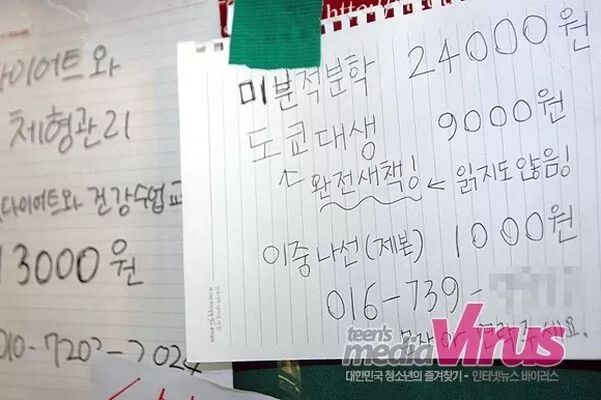 다이어트와
체형관리
다이어트와 건강수업교
13000원
010-7202-2024
http://
미분적분학 24000원
도쿄대생 9000원
완전새책! ← 읽지도않음!
이중나선(제본) 1000원
016-739-
문자 or 연락주세요.
teen's
media Virus
대한민국 청소년의 즐겨찾기 - 인터넷뉴스 바이러스